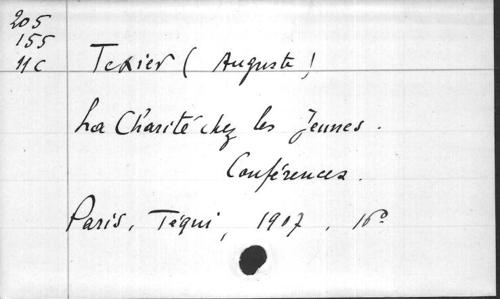 205
155
11C
Texier (Auguste)
La Charité chez les jeunes.
Conférences.
Paris, Téqui, 1907, 16°